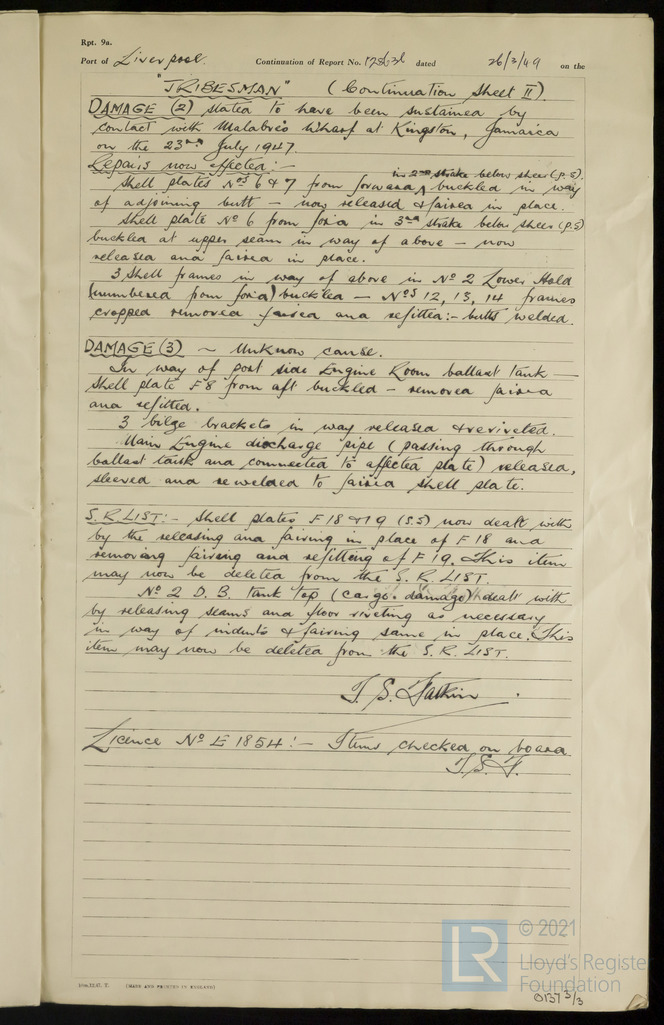 Rpt. 9a.
Port of Liverpool. Continuation of Report No. dated 26/3/49 on the
"TRIBESMAN" (Continuation Sheet II).
DAMAGE (2) stated to have been sustained by
contact with Malabre's Wharf at Kingston, Jamaica
on the 23rd July 1947.
Repairs now effected:-
in 2nd strake below sheer (p.s).
Shell plates Nos 6 & 7 from forward buckled in way
of adjoining butt - now released & faired in place.
Shell plate No 6 from for'd in 3rd strake below sheer (p.s)
buckled at upper seam in way of above - now
released and faired in place.
3 Shell frames in way of above in No 2 Lower Hold
(numbered from for'd) buckled - Nos 12, 13, 14 frames
cropped removed faired and refitted:- butts welded.
DAMAGE (3) ~ Unknow cause.
In way of port side Engine Room ballast tank -
shell plate F8 from aft buckled - removed faired
and refitted.
3 bilge brackets in way released & reriveted.
Main Engine discharge pipe (passing through
ballast tank and connected to affected plate) released,
sleeved and rewelded to faired shell plate.
S.R. LIST:- Shell plates F18 & 19 (S.S) now dealt with
by the releasing and fairing in place of F18 and
removing fairing and refitting of F19. This item
may now be deleted from the S.R. LIST.
No 2 D.B. tank top (cargo damage) dealt with
by releasing seams and floor riveting as necessary
in way of indents & fairing same in place. This
item may now be deleted from the S.R. LIST.
T. S.
Licence No E 1854:- Items checked on board.
T.S.F.
(MADE AND PRINTED IN ENGLAND)
LR
© 2021
Lloyd's Register
Foundation
0137 3/3